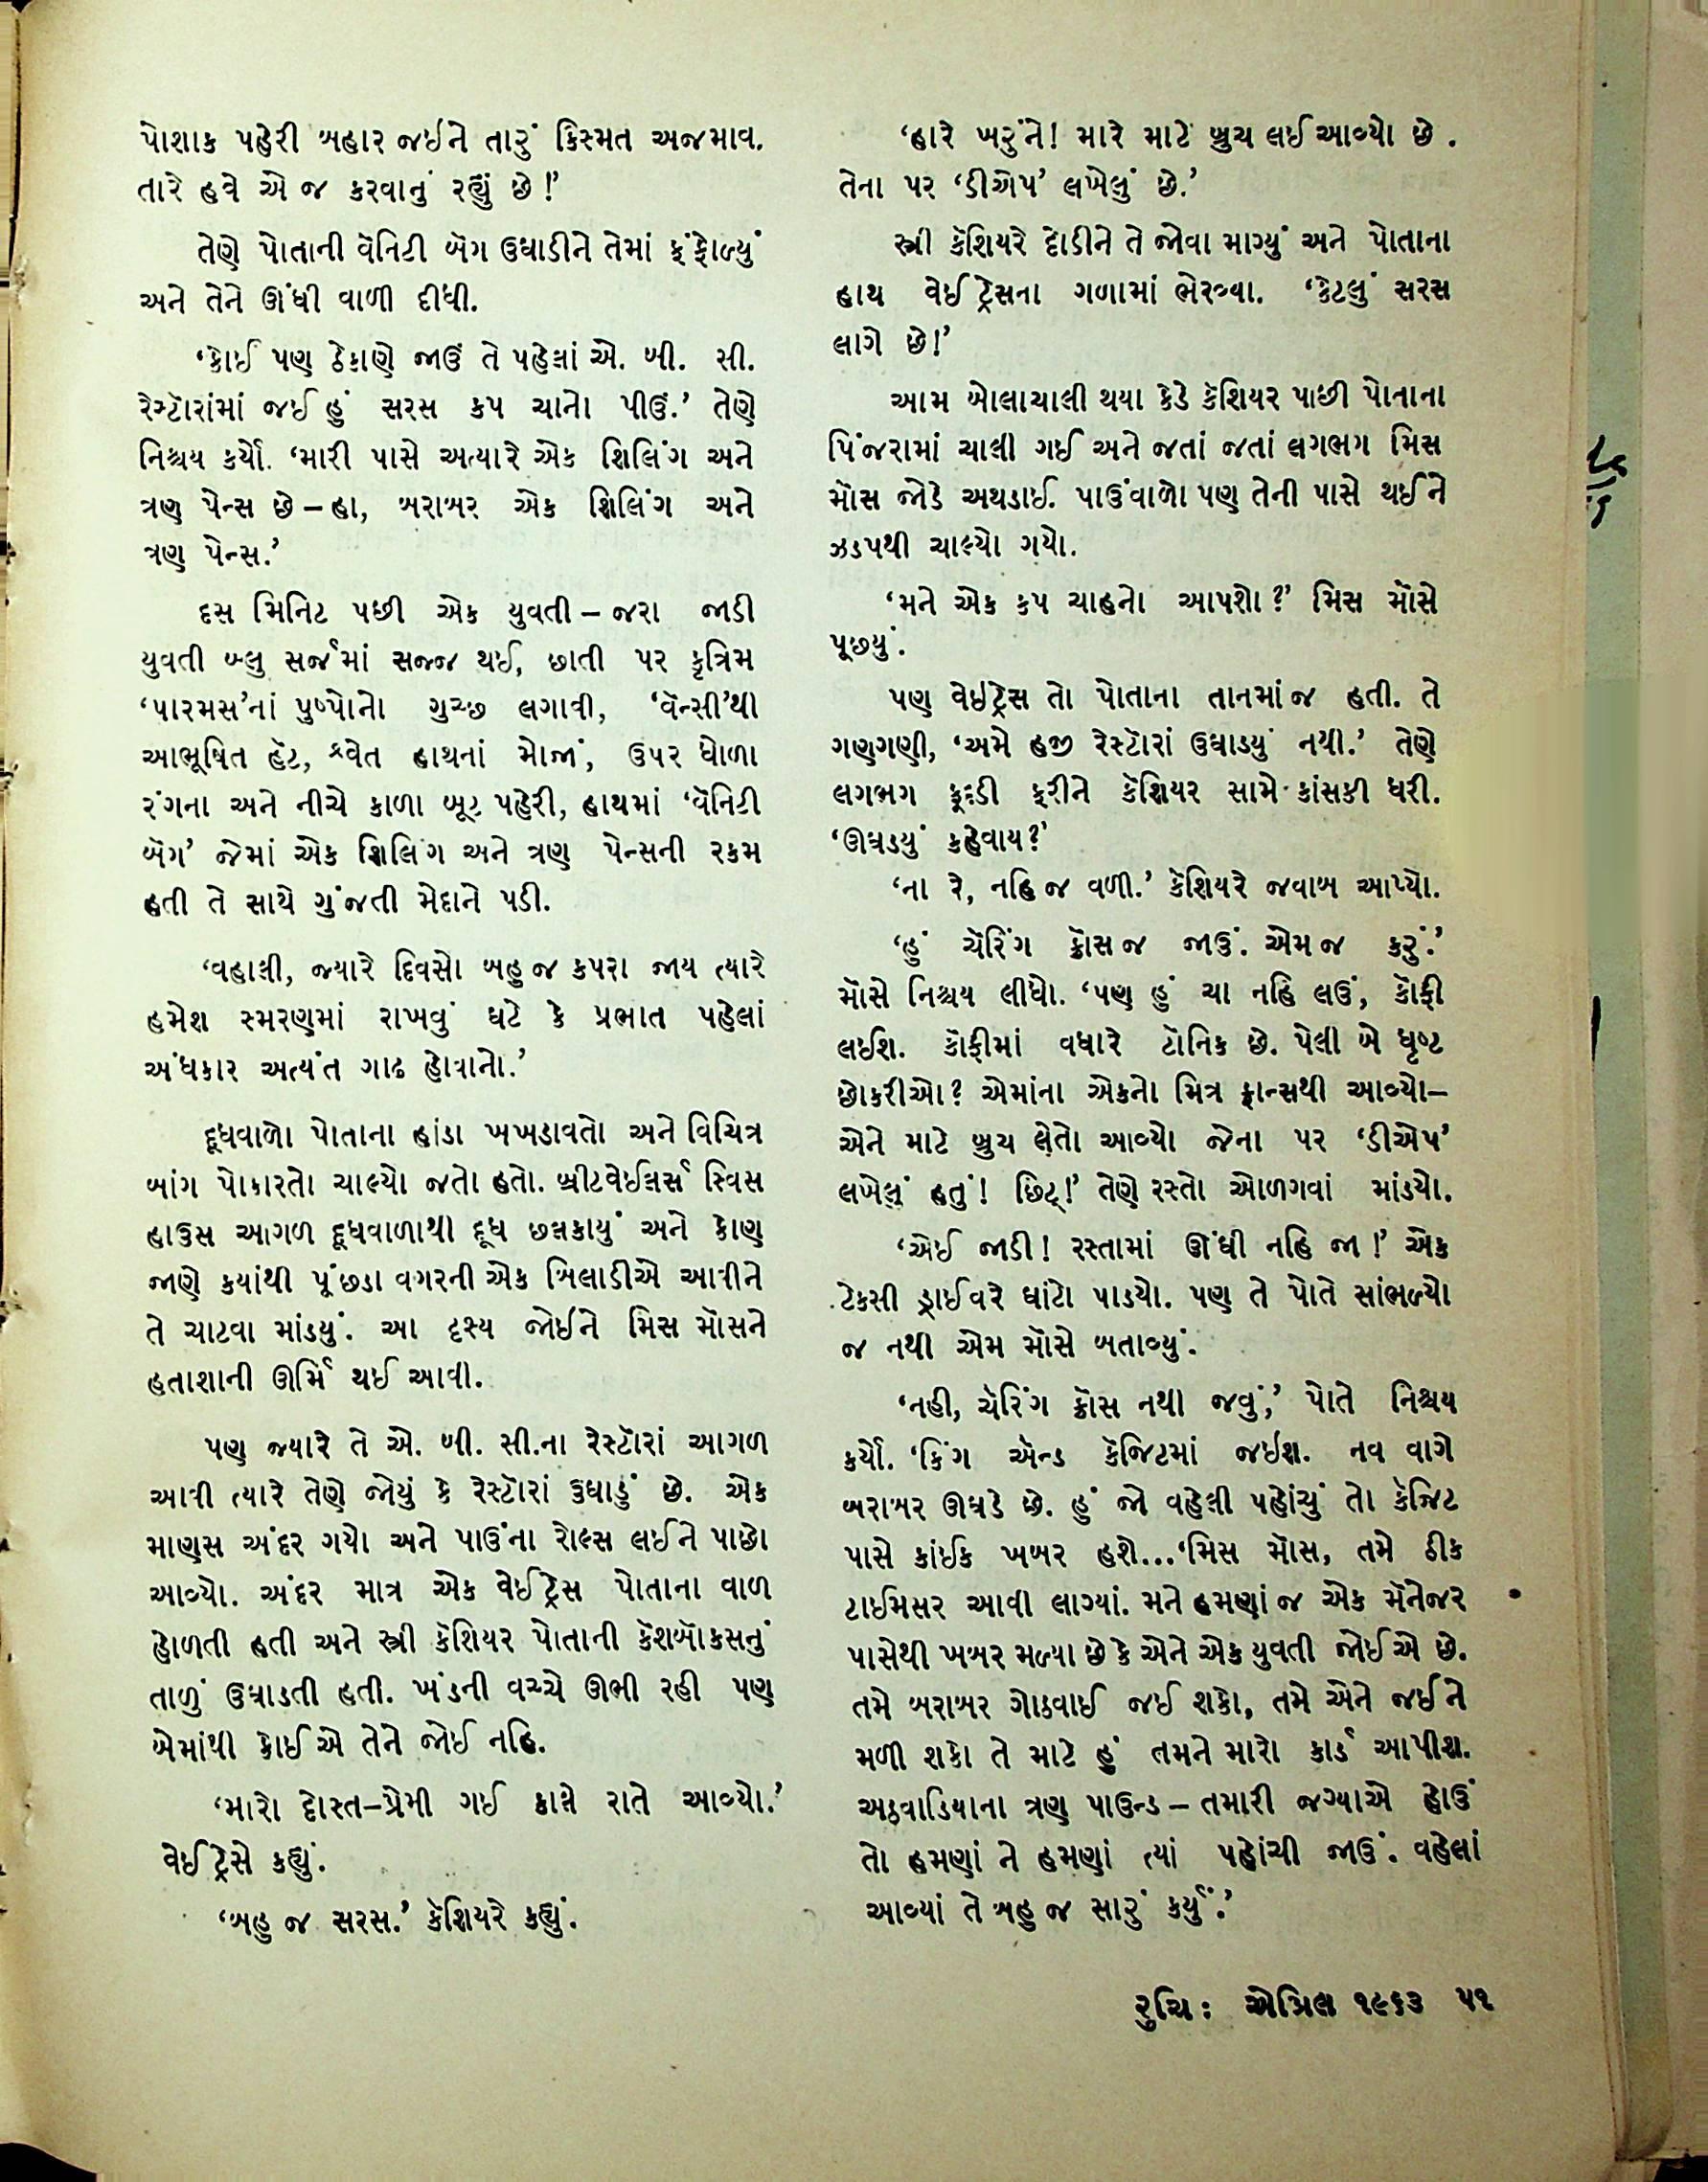 પોશાક પહેરી બહાર જઈને તારું કિસ્મત અજમાવ.
તારે હવે એ જ કરવાનું રહ્યું છે!’
તેણે પોતાની વૅનિટી બૅગ ઉઘાડીને તેમાં ફંફોળ્યું
અને તેને ઊંધી વાળી દીધી.
‘કોઈ પણ ઠેકાણે જાઉં તે પહેલાં એ. બી. સી.
રેસ્ટોરાંમાં જઈ હું સરસ કપ ચાનો પીઉં.’ તેણે
નિશ્ચય કર્યો. ‘મારી પાસે અત્યારે એક શિલિંગ અને
ત્રણ પેન્સ છે – હા, બરાબર એક શિલિંગ અને
ત્રણ પેન્સ.’
દસ મિનિટ પછી એક યુવતી – જરા જાડી
યુવતી બ્લુ સર્જમાં સજ્જ થઈ, છાતી પર કૃત્રિમ
‘પારમસ’નાં પુષ્પોનો ગુચ્છ લગાવી, ‘વૅન્સી’થી
આભૂષિત હૅટ, શ્વેત હાથનાં મોજાં, ઉપર ધોળા
રંગના અને નીચે કાળા બૂટ પહેરી, હાથમાં ‘વૅનિટી
બૅગ’ જેમાં એક શિલિંગ અને ત્રણ પેન્સની રકમ
હતી તે સાથે ગુંજતી મેદાને પડી.
‘વહાલી, જ્યારે દિવસો બહુ જ કપરા જાય ત્યારે
હમેશ સ્મરણમાં રાખવું ઘટે કે પ્રભાત પહેલાં
અંધકાર અત્યંત ગાઢ હોવાનો.’
દૂધવાળો પોતાના હાંડા ખખડાવતો અને વિચિત્ર
બાંગ પોકારતો ચાલ્યો જતો હતો. બ્રીટવેઈલર્સ સ્વિસ
હાઉસ આગળ દૂધવાળાથી દૂધ છલકાયું અને કોણ
જાણે કયાંથી પૂંછડા વગરની એક બિલાડીએ આવીને
તે ચાટવા માંડયું. આ દૃશ્ય જોઈને મિસ મૉસને
હતાશાની ઊર્મિ થઈ આવી.
પણ જ્યારે તે એ. બી. સી.ના રેસ્ટોરાં આગળ
આવી ત્યારે તેણે જોયું કે રેસ્ટોરાં ઉઘાડું છે. એક
માણસ અંદર ગયો અને પાઉંના રોલ્સ લઈને પાછો
આવ્યો. અંદર માત્ર એક વેઈટ્રેસ પોતાના વાળ
હોળતી હતી અને સ્ત્રી કૅશિયર પોતાની કૅશબૉકસનું
તાળું ઉઘાડતી હતી. ખંડની વચ્ચે ઊભી રહી પણ
બેમાંથી કોઈએ તેને જોઈ નહિ.
‘મારો દોસ્ત–પ્રેમી ગઈ કાલે રાતે આવ્યો.’
વેઈટ્રેસે કહ્યું.
‘બહુ જ સરસ.’ કૅશિયરે કહ્યું.
‘હારે ખરુંને! મારે માટે બ્રુચ લઈ આવ્યો છે.
તેના પર ‘ડીએપ’ લખેલું છે.’
સ્ત્રી કૅશિયરે દોડીને તે જોવા માગ્યું અને પોતાના
હાથ વેઈટ્રેસના ગળામાં ભેરવ્યા. ‘કેટલું સરસ
લાગે છે!’
આમ બોલાચાલી થયા કેડે કૅશિયર પાછી પોતાના
પિંજરામાં ચાલી ગઈ અને જતાં જતાં લગભગ મિસ
મૉસ જોડે અથડાઈ. પાઉંવાળો પણ તેની પાસે થઈને
ઝડપથી ચાલ્યો ગયો.
‘મને એક કપ ચાહનો આપશો?’ મિસ મૉસે
પૂછયું.
પણ વેઈટ્રેસ તો પોતાના તાનમાં જ હતી. તે
ગણગણી, ‘અમે હજી રેસ્ટોરાં ઉઘાડયું નથી.’ તેણે
લગભગ કૂદડી ફરીને કૅશિયર સામે કાંસકી ધરી.
‘ઊઘડયું કહેવાય?’
‘ના રે, નહિ જ વળી.’ કૅશિયરે જવાબ આપ્યો.
‘હું ચૅરિંગ ક્રૉસ જ જાઉં. એમ જ કરું.’
મૉસે નિશ્ચય લીધો. ‘પણ હું ચા નહિ લઉં, કૉફી
લઈશ. કૉફીમાં વધારે ટૉનિક છે. પેલી બે ધૃષ્ટ
છોકરીઓ? એમાંના એકનો મિત્ર ફ્રાન્સથી આવ્યો–
એને માટે બ્રુચ લેતો આવ્યો જેના પર ‘ડીએપ’
લખેલું હતું! છિટ્!’ તેણે રસ્તો ઓળગવાં માંડયો.
‘એઈ જાડી! રસ્તામાં ઊંઘી નહિ જા!’ એક
ટેકસી ડ્રાઈવરે ઘાંટો પાડયો. પણ તે પોતે સાંભળ્યો
જ નથી એમ મૉસે બતાવ્યું.
‘નહી, ચૅરિંગ ક્રૉસ નથી જવું,’ પોતે નિશ્ચય
કર્યો. ‘કિંગ ઍન્ડ કૅજિટમાં જઈશ. નવ વાગે
બરાબર ઊઘડે છે. હું જો વહેલી પહોંચું તો કૅજિટ
પાસે કાંઈક ખબર હશે...‘મિસ મૉસ, તમે ઠીક
ટાઈમસર આવી લાગ્યાં. મને હમણાં જ એક મૅનેજર
પાસેથી ખબર મળ્યા છે કે એને એક યુવતી જોઈએ છે.
તમે બરાબર ગોઠવાઈ જઈ શકો, તમે એને જઈને
મળી શકો તે માટે હું તમને મારો કાર્ડ આપીશ.
અઠવાડિયાના ત્રણ પાઉન્ડ – તમારી જગ્યાએ હોઉં
તો હમણાં ને હમણાં ત્યાં પહોંચી જાઉં. વહેલાં
આવ્યાં તે બહુ જ સારું કર્યું.’
રુચિ: એપ્રિલ ૧૯૬૩ ૫૧